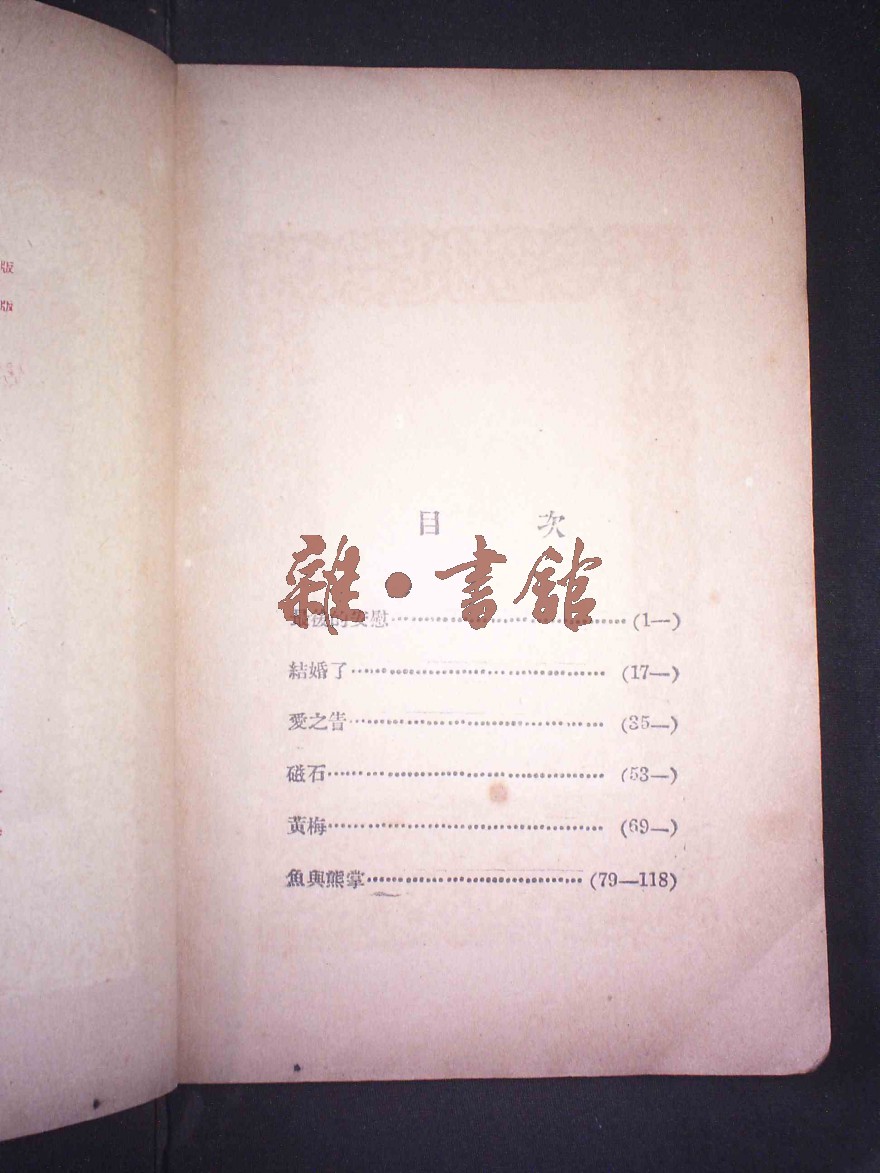 版
版
目 次
雜·書館
最後的安慰 (1—)
結婚了 (17—)
愛之告 (35—)
磁石 (53—)
黃梅 (69—)
魚與熊掌 (79—118)